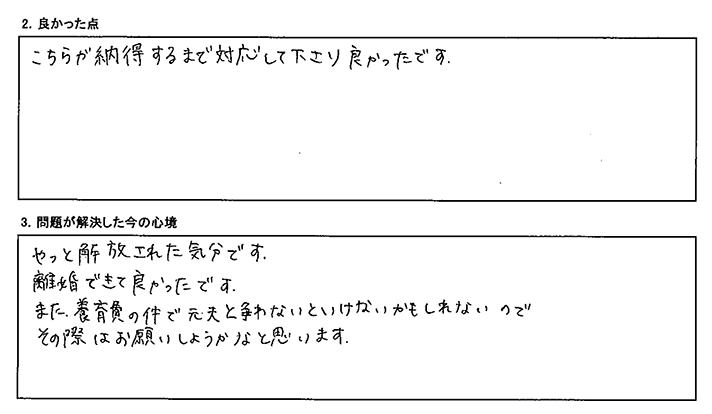 2. 良かった点
こちらが納得するまで対応して下さり良かったです.
3. 問題が解決した今の心境
やっと解放された気分です.
離婚できて良かったです.
また.養育費の件で元夫と争わないといけないかもしれないので
その際はお願いしようかなと思います.